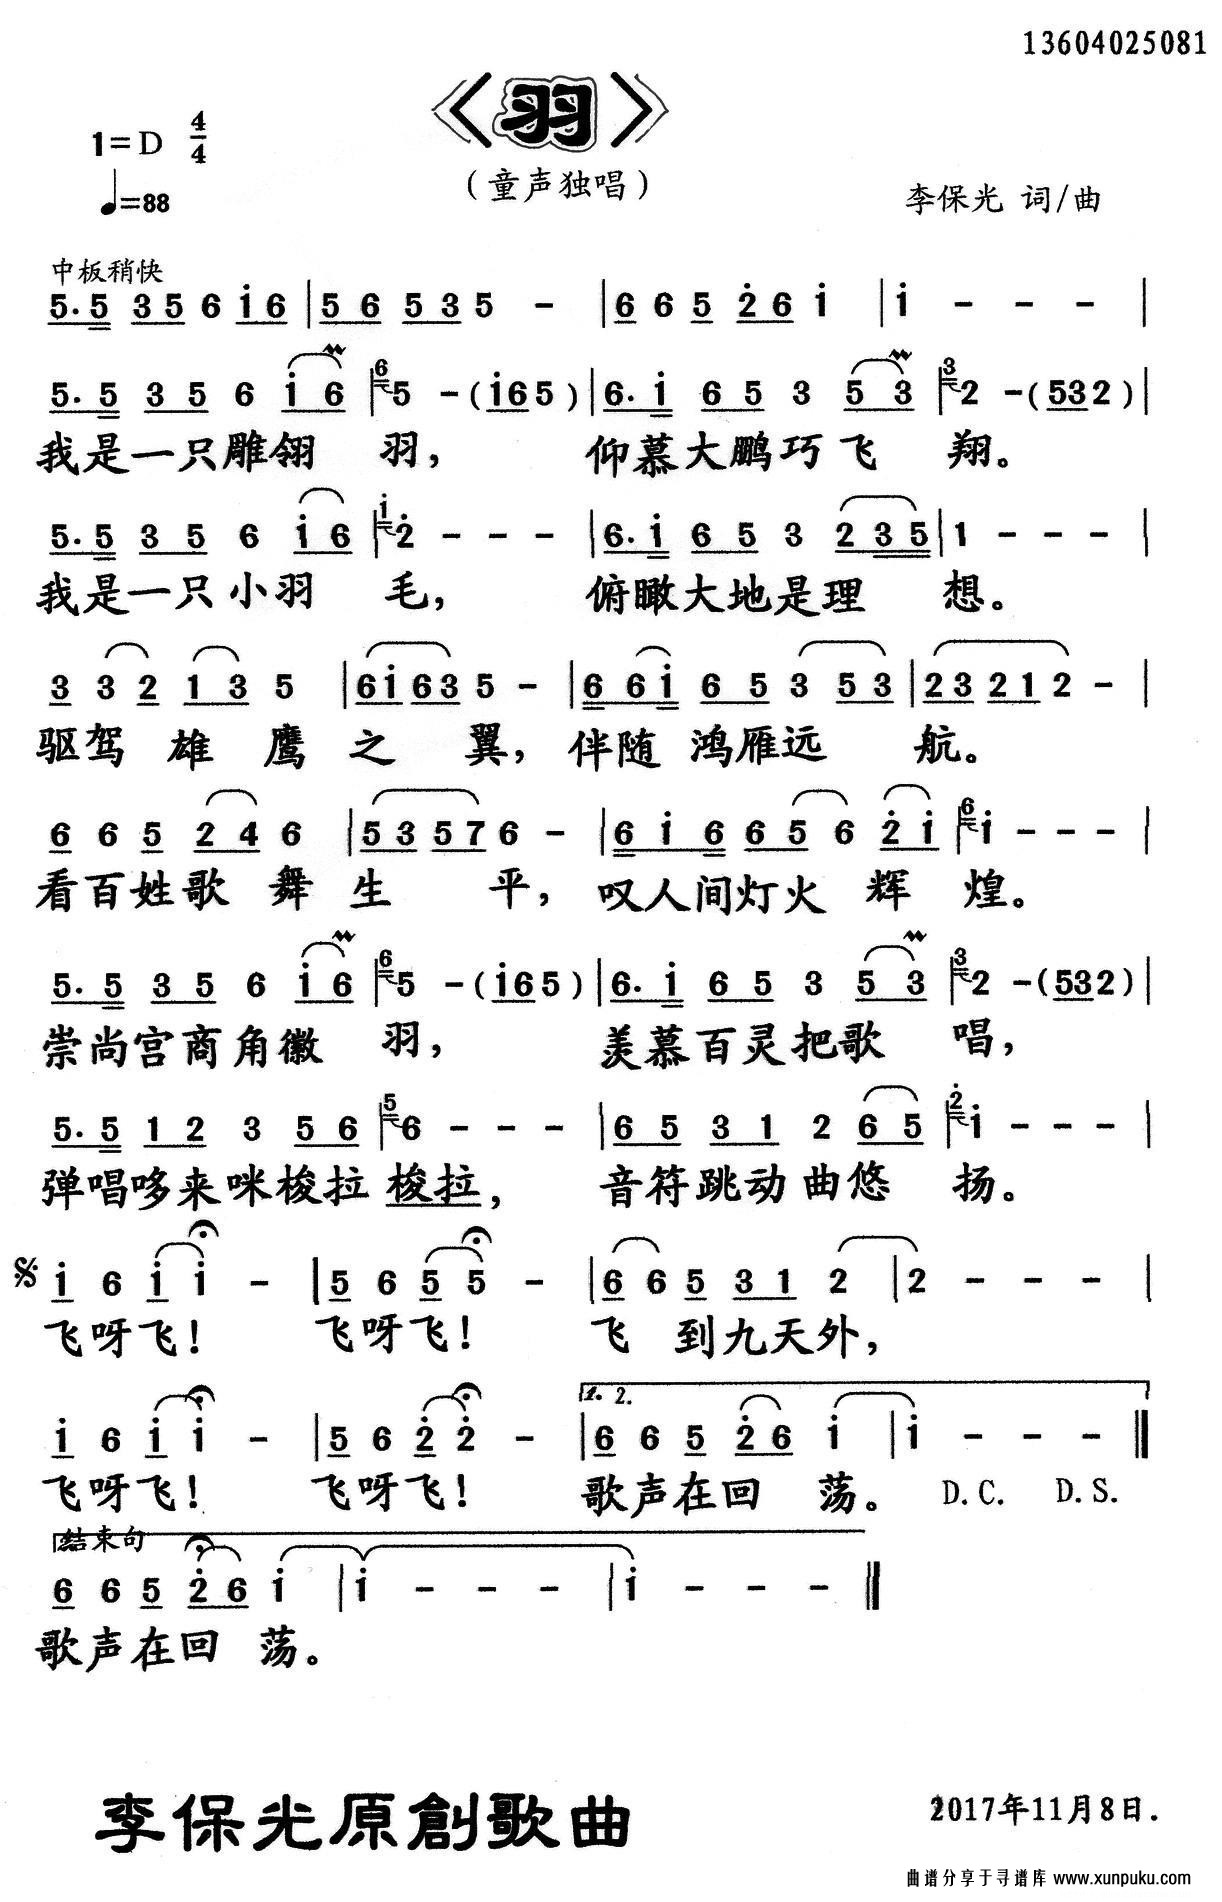 13604025081
《羽》
1=D 4/4
♩=88
(童声独唱)
李保光 词/曲
中板稍快
5.5 35 6 i6 | 56 535 - | 6 6 5 2̇6 i | i - - - |
5.5 35 6 i6 | 6 5 - (i65) | 6.i 65 3 53 | 3 2 - (532) |
我是一只雕翎 羽, 仰慕大鹏巧飞 翔。
5.5 35 6 i6 | i 2̇ - - - | 6.i 65 3 235 | 1 - - - |
我是一只小羽 毛, 俯瞰大地是理 想。
3 3 2 13 5 | 6i63 5 - | 66i 65 3 53 | 2321 2 - |
驱驾 雄 鹰 之 翼, 伴随 鸿雁远 航。
6 6 5 24 6 | 5357 6 - | 6i6 65 6 2̇i | 6 i - - - |
看百姓歌 舞 生 平, 叹人间灯火 辉 煌。
5.5 35 6 i6 | 6 5 - (i65) | 6.i 65 3 53 | 3 2 - (532) |
崇尚宫商角徽 羽, 羡慕百灵把歌 唱,
5.5 12 3 56 | 5 6 - - - | 65 31 2 65 | 2̇ i - - - |
弹唱哆来咪梭拉梭拉, 音符跳动曲悠 扬。
𝄋 i 6 i i - | 5 6 5 5 - | 6 6 5 31 2 | 2 - - - |
飞呀飞! 飞呀飞! 飞 到九天外,
1. 2.
i 6 i i - | 5 6 2̇ 2̇ - | 6 6 5 2̇6 i | i - - - ‖
飞呀飞! 飞呀飞! 歌声在回 荡。 D.C. D.S.
结束句
6 6 5 2̇6 i | i - - - | i - - - ‖
歌声在回 荡。
李保光原創歌曲
2017年11月8日.
曲谱分享于寻谱库 www.xunpuku.com